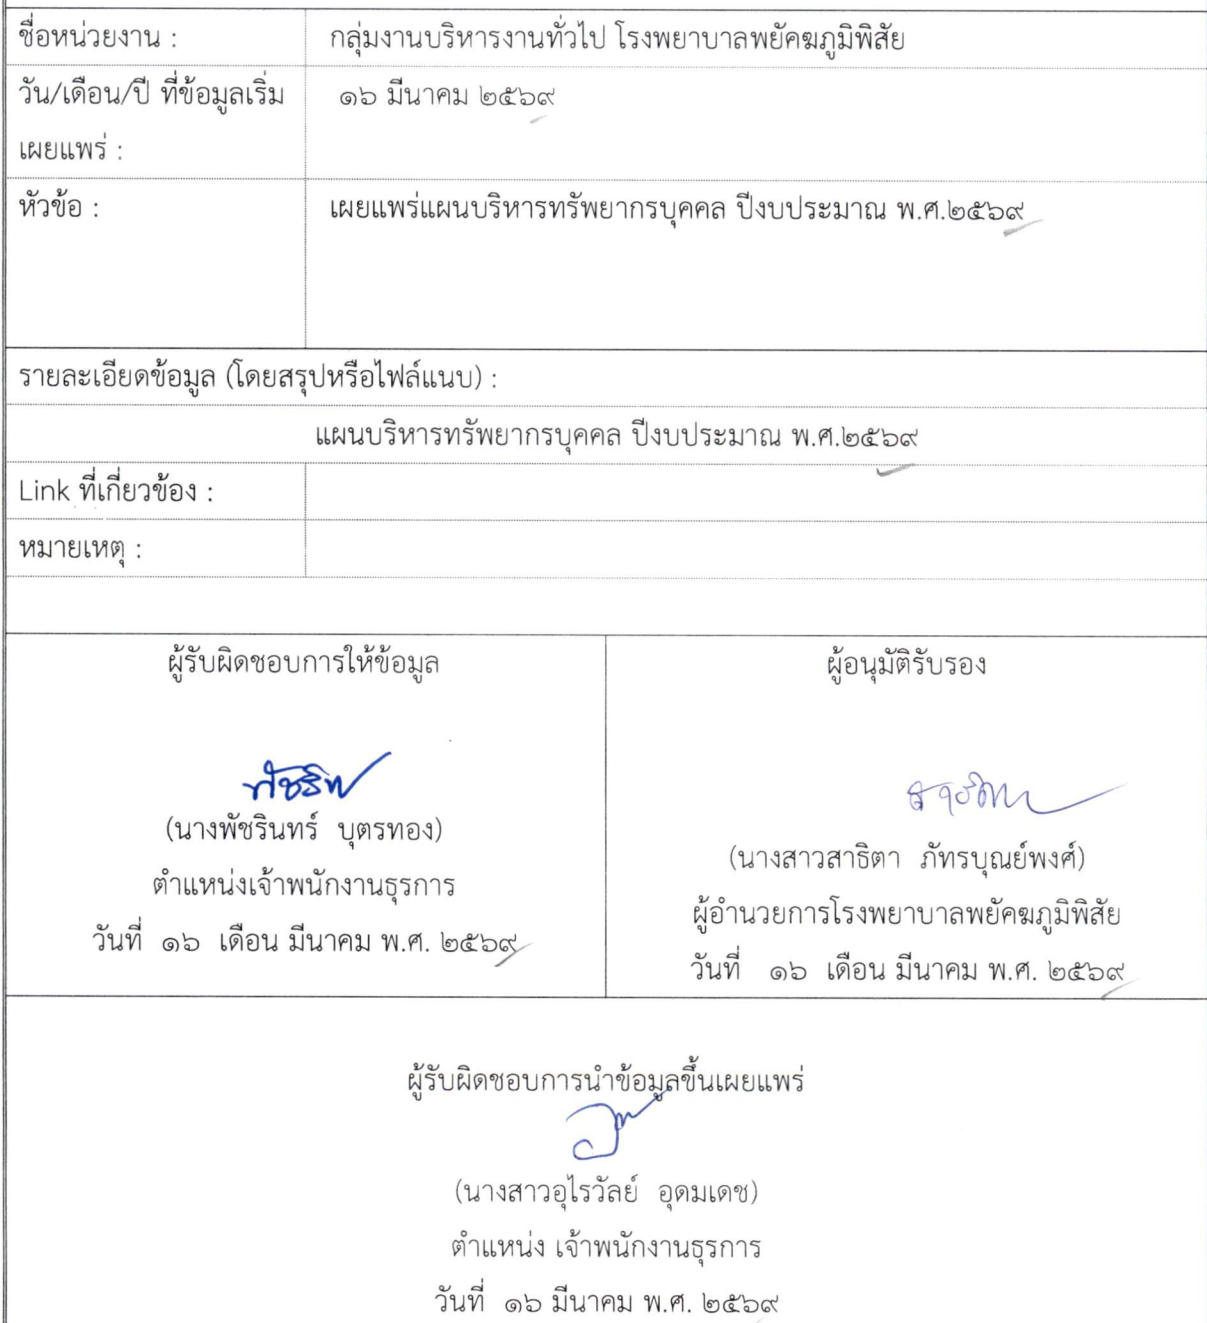 ชื่อหน่วยงาน : กลุ่มงานบริหารงานทั่วไป โรงพยาบาลพยัคฆภูมิพิสัย
วัน/เดือน/ปี ที่ข้อมูลเริ่ม ๑๖ มีนาคม ๒๕๖๙
เผยแพร่ :
หัวข้อ : เผยแพร่แผนบริหารทรัพยากรบุคคล ปีงบประมาณ พ.ศ.๒๕๖๙
รายละเอียดข้อมูล (โดยสรุปหรือไฟล์แนบ) :
แผนบริหารทรัพยากรบุคคล ปีงบประมาณ พ.ศ.๒๕๖๙
Link ที่เกี่ยวข้อง :
หมายเหตุ :
ผู้รับผิดชอบการให้ข้อมูล
พัชรินทร์
(นางพัชรินทร์ บุตรทอง)
ตำแหน่งเจ้าพนักงานธุรการ
วันที่ ๑๖ เดือน มีนาคม พ.ศ. ๒๕๖๙
ผู้อนุมัติรับรอง
(นางสาวสาธิตา ภัทรบุณย์พงศ์)
ผู้อำนวยการโรงพยาบาลพยัคฆภูมิพิสัย
วันที่ ๑๖ เดือน มีนาคม พ.ศ. ๒๕๖๙
ผู้รับผิดชอบการนำข้อมูลขึ้นเผยแพร่
(นางสาวอุไรวัลย์ อุดมเดช)
ตำแหน่ง เจ้าพนักงานธุรการ
วันที่ ๑๖ มีนาคม พ.ศ. ๒๕๖๙